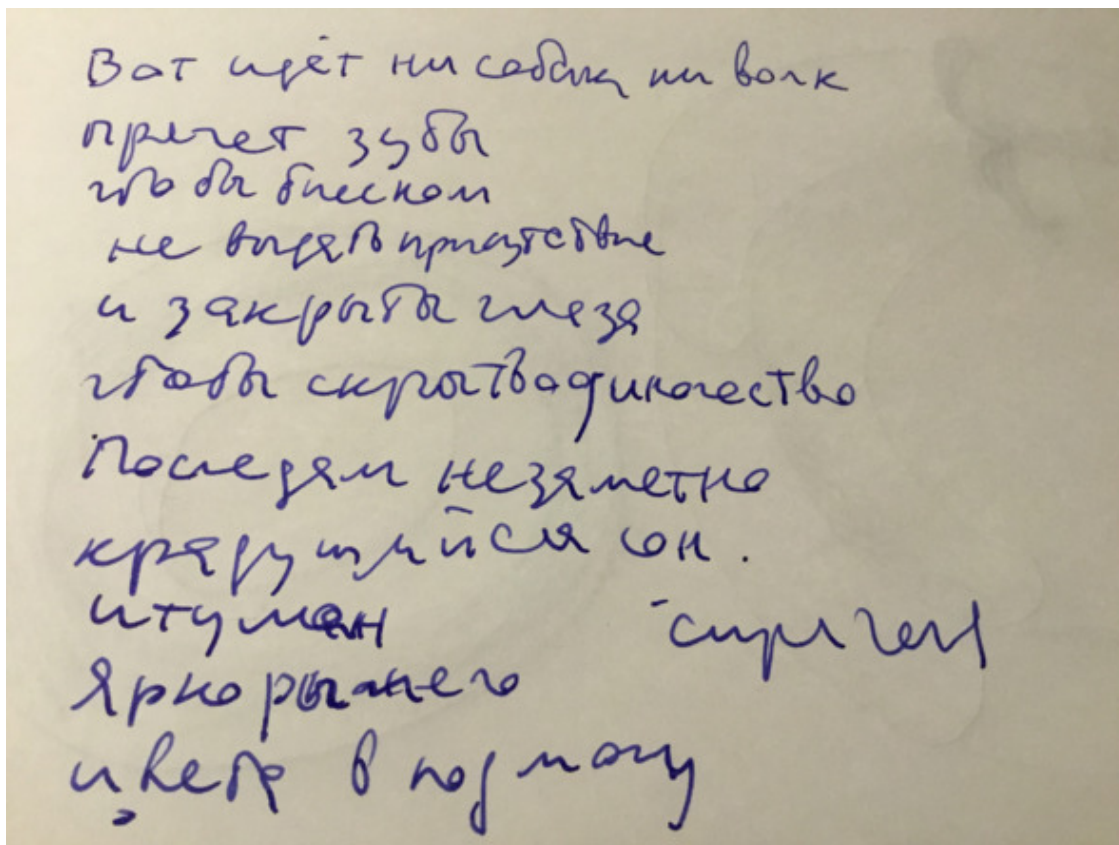 Вот идёт ни собака ни волк
прячет зубы
чтобы блеском
не выдать присутствие
и закрыты глаза
чтобы скрыть одиночество
По следам незаметно
крадущийся он.
и туман
Ярко рыжего
цвета в подмогу